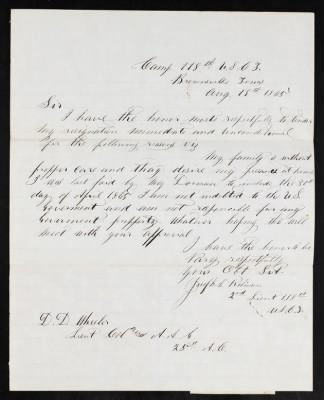 Camp 118th U.S.C.I.
Brownsville Texas
Aug 18th 1865
Sir
I have the honor most respectfully to tender
my resignation immediate and unconditional
for the following reasons viz
My family is without
propper care and thay desire my presence at home
I was last paid by Maj to include the 30th
day of April 1865 I am not indebted to the U.S
Government and am not responsible for any
Goverment propperty whatever hoping this will
meet with your approval
I have the honor to be
Very respectfully
Your Obt Svt
Joseph
2nd Lieut 118th
U.S.C.I.
D. D. Wheeler
Lieut Col A A G
25th A.C.